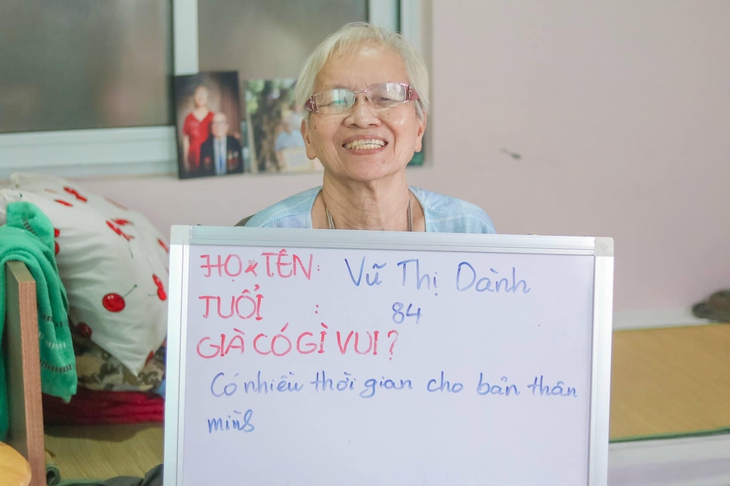 HỌ & TÊN: Vũ Thị Dành
TUỔI : 84
GIÀ CÓ GÌ VUI?
Có nhiều thời gian cho bản thân
mình